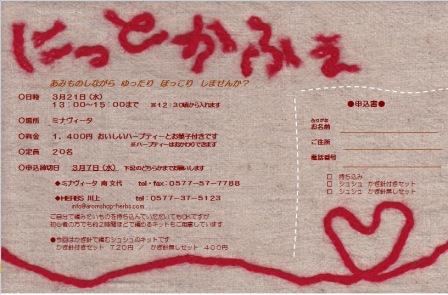 にっとかふぇ
あみものしながら ゆったり ほっこり しませんか？
○日時 ３月２１日（水）
１３：００～１５：００まで ※１２：３０頃から入れます
○場所 ミナヴィータ
○料金 １，４００円 おいしいハーブティーとお菓子付きです
※ハーブティーはおかわりできます
○定員 ２０名
○申込締切日 ３月７日（水） 下記のどちらかまでお願いします
◆ミナヴィータ 南 文代 tel・fax：０５７７－５７－７７８８
◆HERBS 川上 tel：０５７７－３７－５１２３
info@aromshop-herbs.com
ご自分で編みたいものを持ち込んでいただいてもＯＫですが
初心者の方でも約２時間ほどで編めるキットもご用意しています
◆今回はかぎ針で編むシュシュのキットです
かぎ針付きセット ７２０円 ／ かぎ針無しセット ４００円
●申込書●
ふりがな
お名前
ご住所
電話番号
□ 持ち込み
□ シュシュ かぎ針付きセット
□ シュシュ かぎ針無しセット